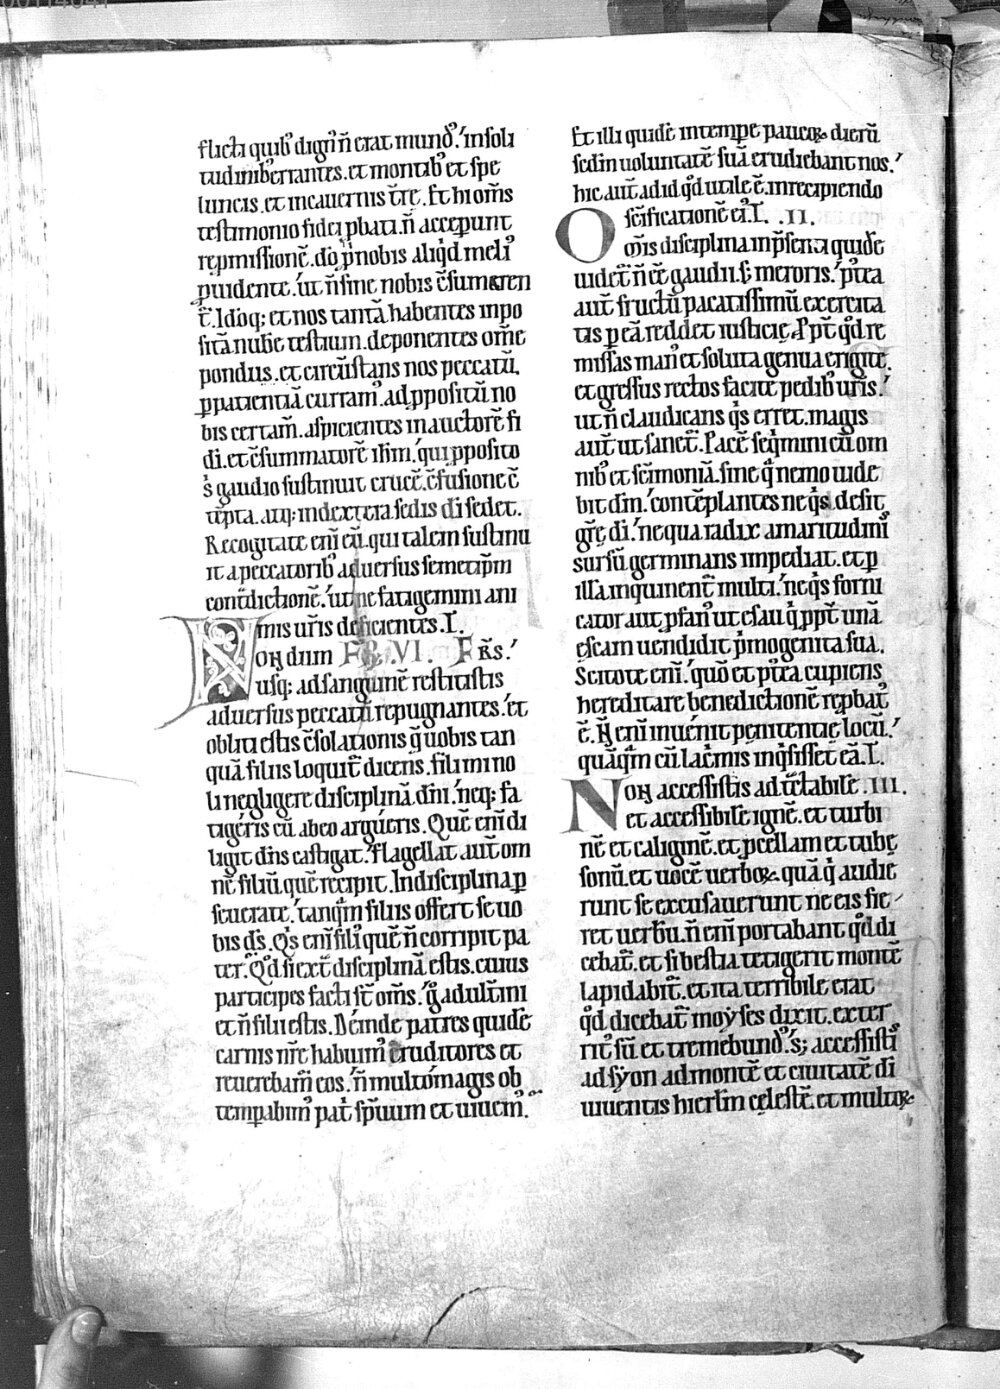 flicti quib⁹ dign⁹ ñ erat mund⁹. in soli
tudinib⁹ errantes. et montib⁹ et spe
luncis. et in cauernis t̄rę. Et hi om̄s
testimonio fidei ꝓbati. ñ acceperunt
repmissionē. dō ꝓ nobis aliqͥd meli⁹
ꝓuidente. ut ñ sine nobis ɔ̄sumaren
t̄. Idoq; et nos tantā habentes inpo
sitā nubē testium. deponentes om̄e
pondus. et circūstans nos peccatū.
ꝑ patientiā curram⁹. ad ꝓpositū no
bis certam̄. aspicientes in auctorē fi
dei. et ɔ̄summatorē ih̄m. qui ꝓposito
s̓ gaudio sustinuit crucē. ɔ̄fusione ɔ̄
tēpta. atq; in dextera sedis di sedet.
Recogitate eni eū. qui talem sustinu
it a peccatorib⁹ aduersus semetip̄m
cont̄dictionē. ut ne fatigemini ani
mis uris deficientes. I.
Non dum FR̄. VI. FR̄s.
usq; ad sanguinē restitistis
aduersus peccatū repugnantes. et
obliti estis ɔ̄solationis q̄ uobis tan
quā filiis loquit̄ dicens. fili mi no
li negligere disciplinā dni. neq; fa
tigeris cū ab eo argueris. Quē eni di
ligit dn̄s castigat. Flagellat aut om
nē filiū quē recipit. In disciplina ꝑ
seuerate. tanqͣm filiis offert se uo
bis ds̄. Qͥs eni fili⁹ quē ñ corripit pa
ter. Qd̓ si ext̄ disciplinā estis. cuius
participes facti st̄ om̄s. g̊ adult̄ini
et ñ filii estis. Deinde patres quidē
carnis nr̄e habuim⁹ eruditores et
reuerebam̄ eos. ñ multo magis ob
temꝑabim⁹ pat̓ sp̄uum et uiuem⁹.
Et illi quidē in tempe paucoꝝ dierū
sed̄m uoluntatē suā erudiebant nos.
hic aut̄ ad id qd̓ utile ē. in recipiendo
sc̄ificationē ei⁹. I. .II.
Om̄is disciplina in p̄senti quidē
uidet̄ ñ ēe gaudii. s; meroris. p⁹tea
aut̄ fructū pacatissimū exercita
tis ꝑ eā reddet iusticię. Ppt̄ qd̓ re
missas man⁹ et soluta genua erigite.
et gressus rectos facite pedib⁹ uris.
ut ñ claudicans qͥs erret. magis
aut̄ ut sanet̄. Pacē seqͥmini cū om
nib⁹ et sc̄imoniā. sine qͣ nemo uide
bit dm̄. contēplantes ne qͥs desit
grę di. ne qua radix amaritudinis
sursū germinans impediat. et ꝑ
illā inquinent̄ multi. ne qͥs forni
cator aut ꝓfan⁹ ut esau qͥ ppt̄ unā
escam uendidit pͥmogenita sua.
Scitote eni. quō et p⁹tea cupiens
hereditare benedictionē reꝓbat⁹
ē. Ñ eni inuenit penitentię locū.
quāqͣm cū lacͥmis inqͥsisset eā. I.
Non accessistis ad tͣctabile .III.
et accessibile ignē. et turbi
nē et caliginē. et ꝓcellam et tubę
sonū. et uocē uerboꝝ. quā qͥ audie
runt se excusauerunt ne eis fie
ret uerbū. ñ eni portabant qd̓ di
cebat̄. et si bestia tetigerit montē
lapidabit̄. et ita terribile erat
qd̓ dicebat̄ moyses dixit. exter
rit⁹ sū et tremebund⁹. s; accessisti
ad syon ad montē et ciuitatē di
uiuentis hierłm celestē. et multoꝝ